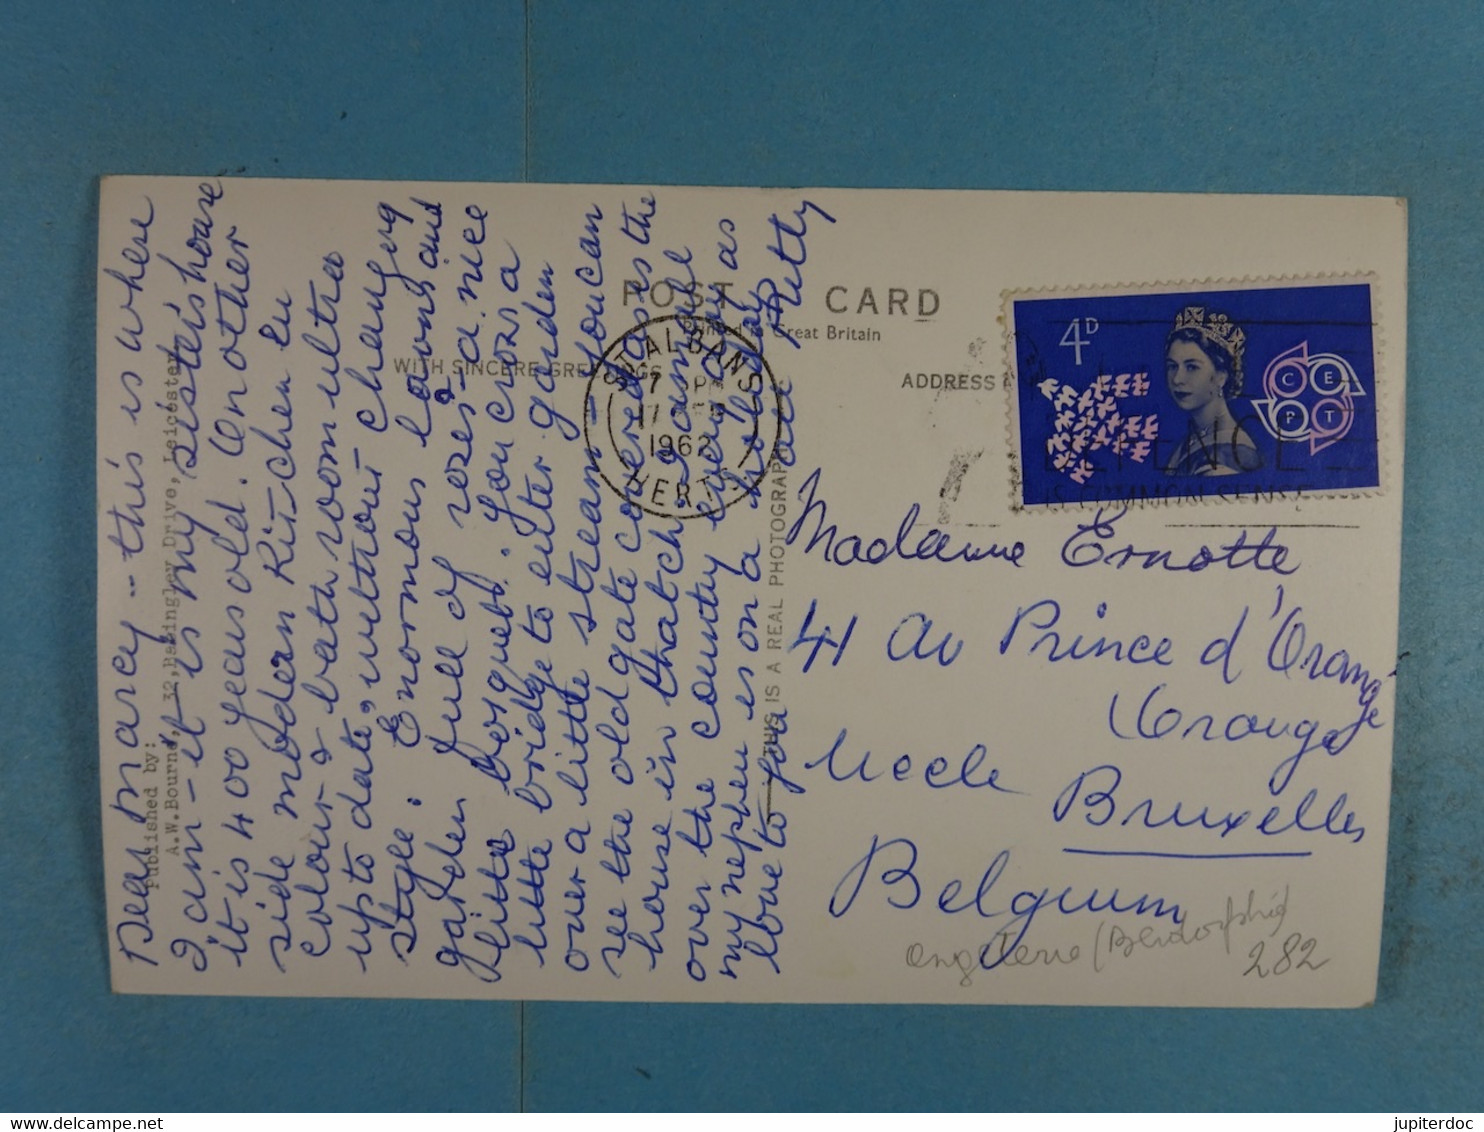 Dear Marcy - this is where
I am - it is my sister's house
it is 400 years old. Another
side modern Kitchen en
colour & bath room ultra
up to date, without changing
style. Enormous lawns and
garden full of roses - a nice
little bosquet. You cross a
little bridge to enter garden
over a little stream - you can
see the old gate covered as is the
house in thatch. I am
over the country every day as
my nephew is on a holiday
love to you all Kitty
Published by:
A.W.Bourne, 32, Basingley Drive, Leicester
POST CARD
Printed in Great Britain
WITH SINCERE GREETINGS
ADDRESS
THIS IS A REAL PHOTOGRAPH
ST ALBANS
7 PM
17
1962
HERTS
DEFENCE
IS COMMON SENSE
4D
CEPT
Madame Ernotte
41 Av Prince d'Orange
Orange
Uccle
Bruxelles
Belgium
Angleterre
282
jupiterdoc
delcampe.net